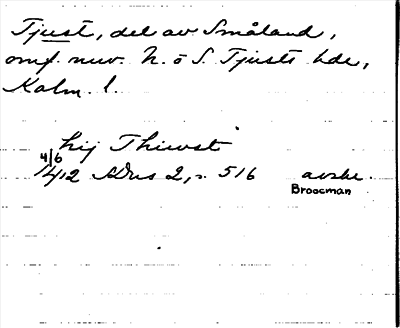 Tjust, del av Småland,
omf. nuv. N. o S. Tjusts hde,
Kalm. l.
hij Thiwst
4/6
1412 SDns 2, s. 516 avskr.
Broocman